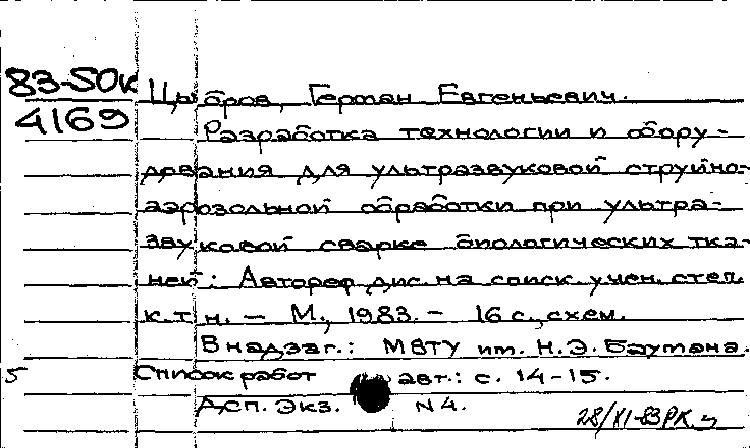 83-50к
4169
Цыбров, Герман Евгеньевич.
Разработка технологии и обору-
дования для ультразвуковой струйно-
аэрозольной обработки при ультра-
звуковой сварке биологических тка-
ней: Автореф. дис. на соиск. учен. степ.
к.т.н. — М., 1983. — 16 с., схем.
В надзаг.: МВТУ им. Н.Э. Баумана.
5 Список работ авт.: с. 14-15.
Дсп. Экз. N4.
28/XI-83 РК